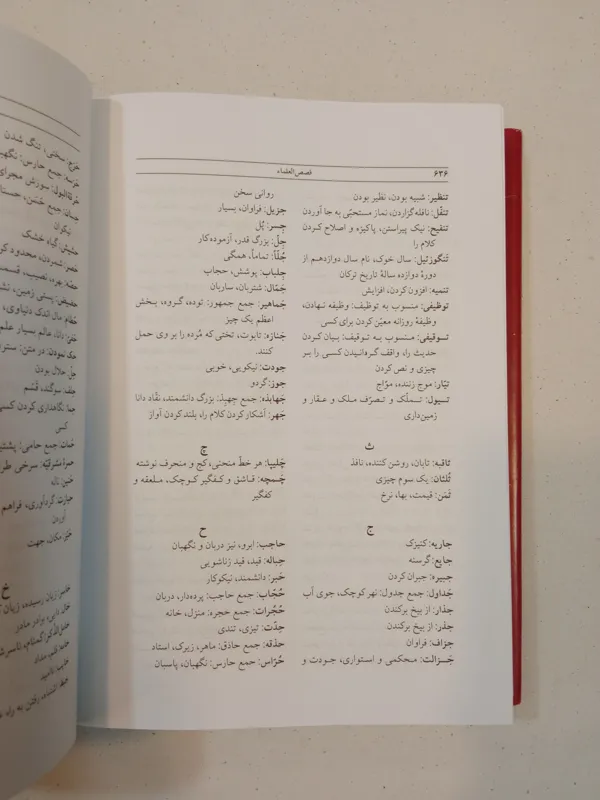 ۶۳۶
قصص‌العلماء
تنظیر: شبیه بودن، نظیر بودن
تنفّل: نافله‌گزاردن، نماز مستحبّی به جا آوردن
تنقیح: نیک پیراستن، پاکیزه و اصلاح کردن
کلام را
تَنگوزئیل: سال خوک، نام سال دوازدهم از
دورهٔ دوازده سالهٔ تاریخ ترکان
تنمیه: افزون کردن، افزایش
توظیفی: منسوب به توظیف: وظیفه نهادن،
وظیفهٔ روزانه معیّن کردن برای کسی
تـوقیفی: منسوب به توقیف: بیان کردن
حدیث را، واقف گردانیدن کسی را بر
چیزی و نص کردن
تیّار: موج زننده، موّاج
تیول: تملّک و تصرّف ملک و عقار و
زمین‌داری
ث
ثاقبه: تابان، روشن کننده، نافذ
ثُلثان: یک سوم چیزی
ثَمَن: قیمت، بها، نرخ
ج
جاریه: کنیزک
جایع: گرسنه
جبیره: جبران کردن
جَداول: جمع جدول: نهر کوچک، جوی آب
جذار: از بیخ برکندن
جذر: از بیخ برکندن
جزاف: فراوان
جَزالت: محکمی و استواری، جودت و
روانی سخن
جزیل: فراوان، بسیار
جِسر: پُل
جِلّ: بزرگ قدر، آزموده‌کار
جُلّاً: تماماً، همگی
جِلباب: پوشش، حجاب
جَمّال: شتربان، ساربان
جَماهیر: جمع جمهور: توده، گروه، بخش
اعظم یک چیز
جَنازه: تابوت، تختی که مُرده را بر وی حمل
کنند.
جودت: نیکویی، خوبی
جوز: گردو
جَهابذه: جمع جهبذ: بزرگ دانشمند، نقّاد دانا
جَهر: آشکار کردن کلام را، بلند کردن آواز
چ
چلیپا: هر خطّ منحنی، کج و منحرف نوشته
چَمچه: قاشق و کفگیر کوچک، ملعقه و
کفگیر
ح
حاجب: ابرو، نیز دربان و نگهبان
حِباله: قید، قید زناشویی
حَبر: دانشمند، نیکوکار
حُجّاب: جمع حاجب: پرده‌دار، دربان
حُجُرات: جمع حجره: منزل، خانه
حِدّت: تیزی، تندی
حذقه: جمع حاذق: ماهر، زیرک، استاد
حُرّاس: جمع حارس: نگهبان، پاسبان
سختی، تنگ شدن
جمع حارس:
سوزش مجرای
نیکوان
گیاه خشک
شمردن، محدود
بهره، نصیب،
پستی زمین،
مال اندک دنیاوی،
دانا، عالم بسیار علم
حلال بودن
سوگند، قَسَم
نگاهداری کردن کسی
کسی
جمع حامی:
سرخی
گردآوری، فراهم
آوردن
مکان، جهت
خ
زیان رسیده، زیان
برادر مادر